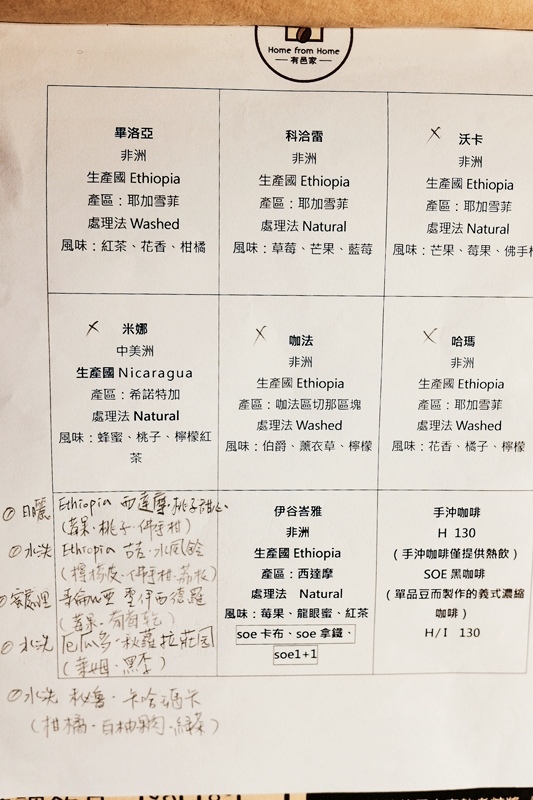 Home from Home
有邑家
畢洛亞
非洲
生產國 Ethiopia
產區：耶加雪菲
處理法 Washed
風味：紅茶、花香、柑橘
科洽雷
非洲
生產國 Ethiopia
產區：耶加雪菲
處理法 Natural
風味：草莓、芒果、藍莓
✗ 沃卡
非洲
生產國 Ethiopia
產區：耶加雪菲
處理法 Natural
風味：芒果、莓果、佛手柑
✗ 米娜
中美洲
生產國 Nicaragua
產區：希諾特加
處理法 Natural
風味：蜂蜜、桃子、檸檬紅
茶
✗ 咖法
非洲
生產國 Ethiopia
產區：咖法區切那區塊
處理法 Washed
風味：伯爵、薰衣草、檸檬
✗ 哈瑪
非洲
生產國 Ethiopia
產區：耶加雪菲
處理法 Washed
風味：花香、橘子、檸檬
日曬 Ethiopia 西達摩·桃子甜心
(莓果·桃子·佛手柑)
水洗 Ethiopia 古吉·水風鈴
(檸檬皮·佛手柑·荔枝)
蜜處理 哥倫比亞 聖伊西德羅
(莓果·葡萄乾)
水洗 厄瓜多·秋蘿拉莊園
(萊姆·黑李)
水洗 秘魯·卡哈瑪卡
(柑橘·白柚果肉·綠茶)
伊谷峇雅
非洲
生產國 Ethiopia
產區：西達摩
處理法 Natural
風味：莓果、龍眼蜜、紅茶
soe 卡布、soe 拿鐵、
soe1+1
手沖咖啡
H 130
（手沖咖啡僅提供熱飲）
SOE 黑咖啡
（單品豆而製作的義式濃縮
咖啡）
H/I 130